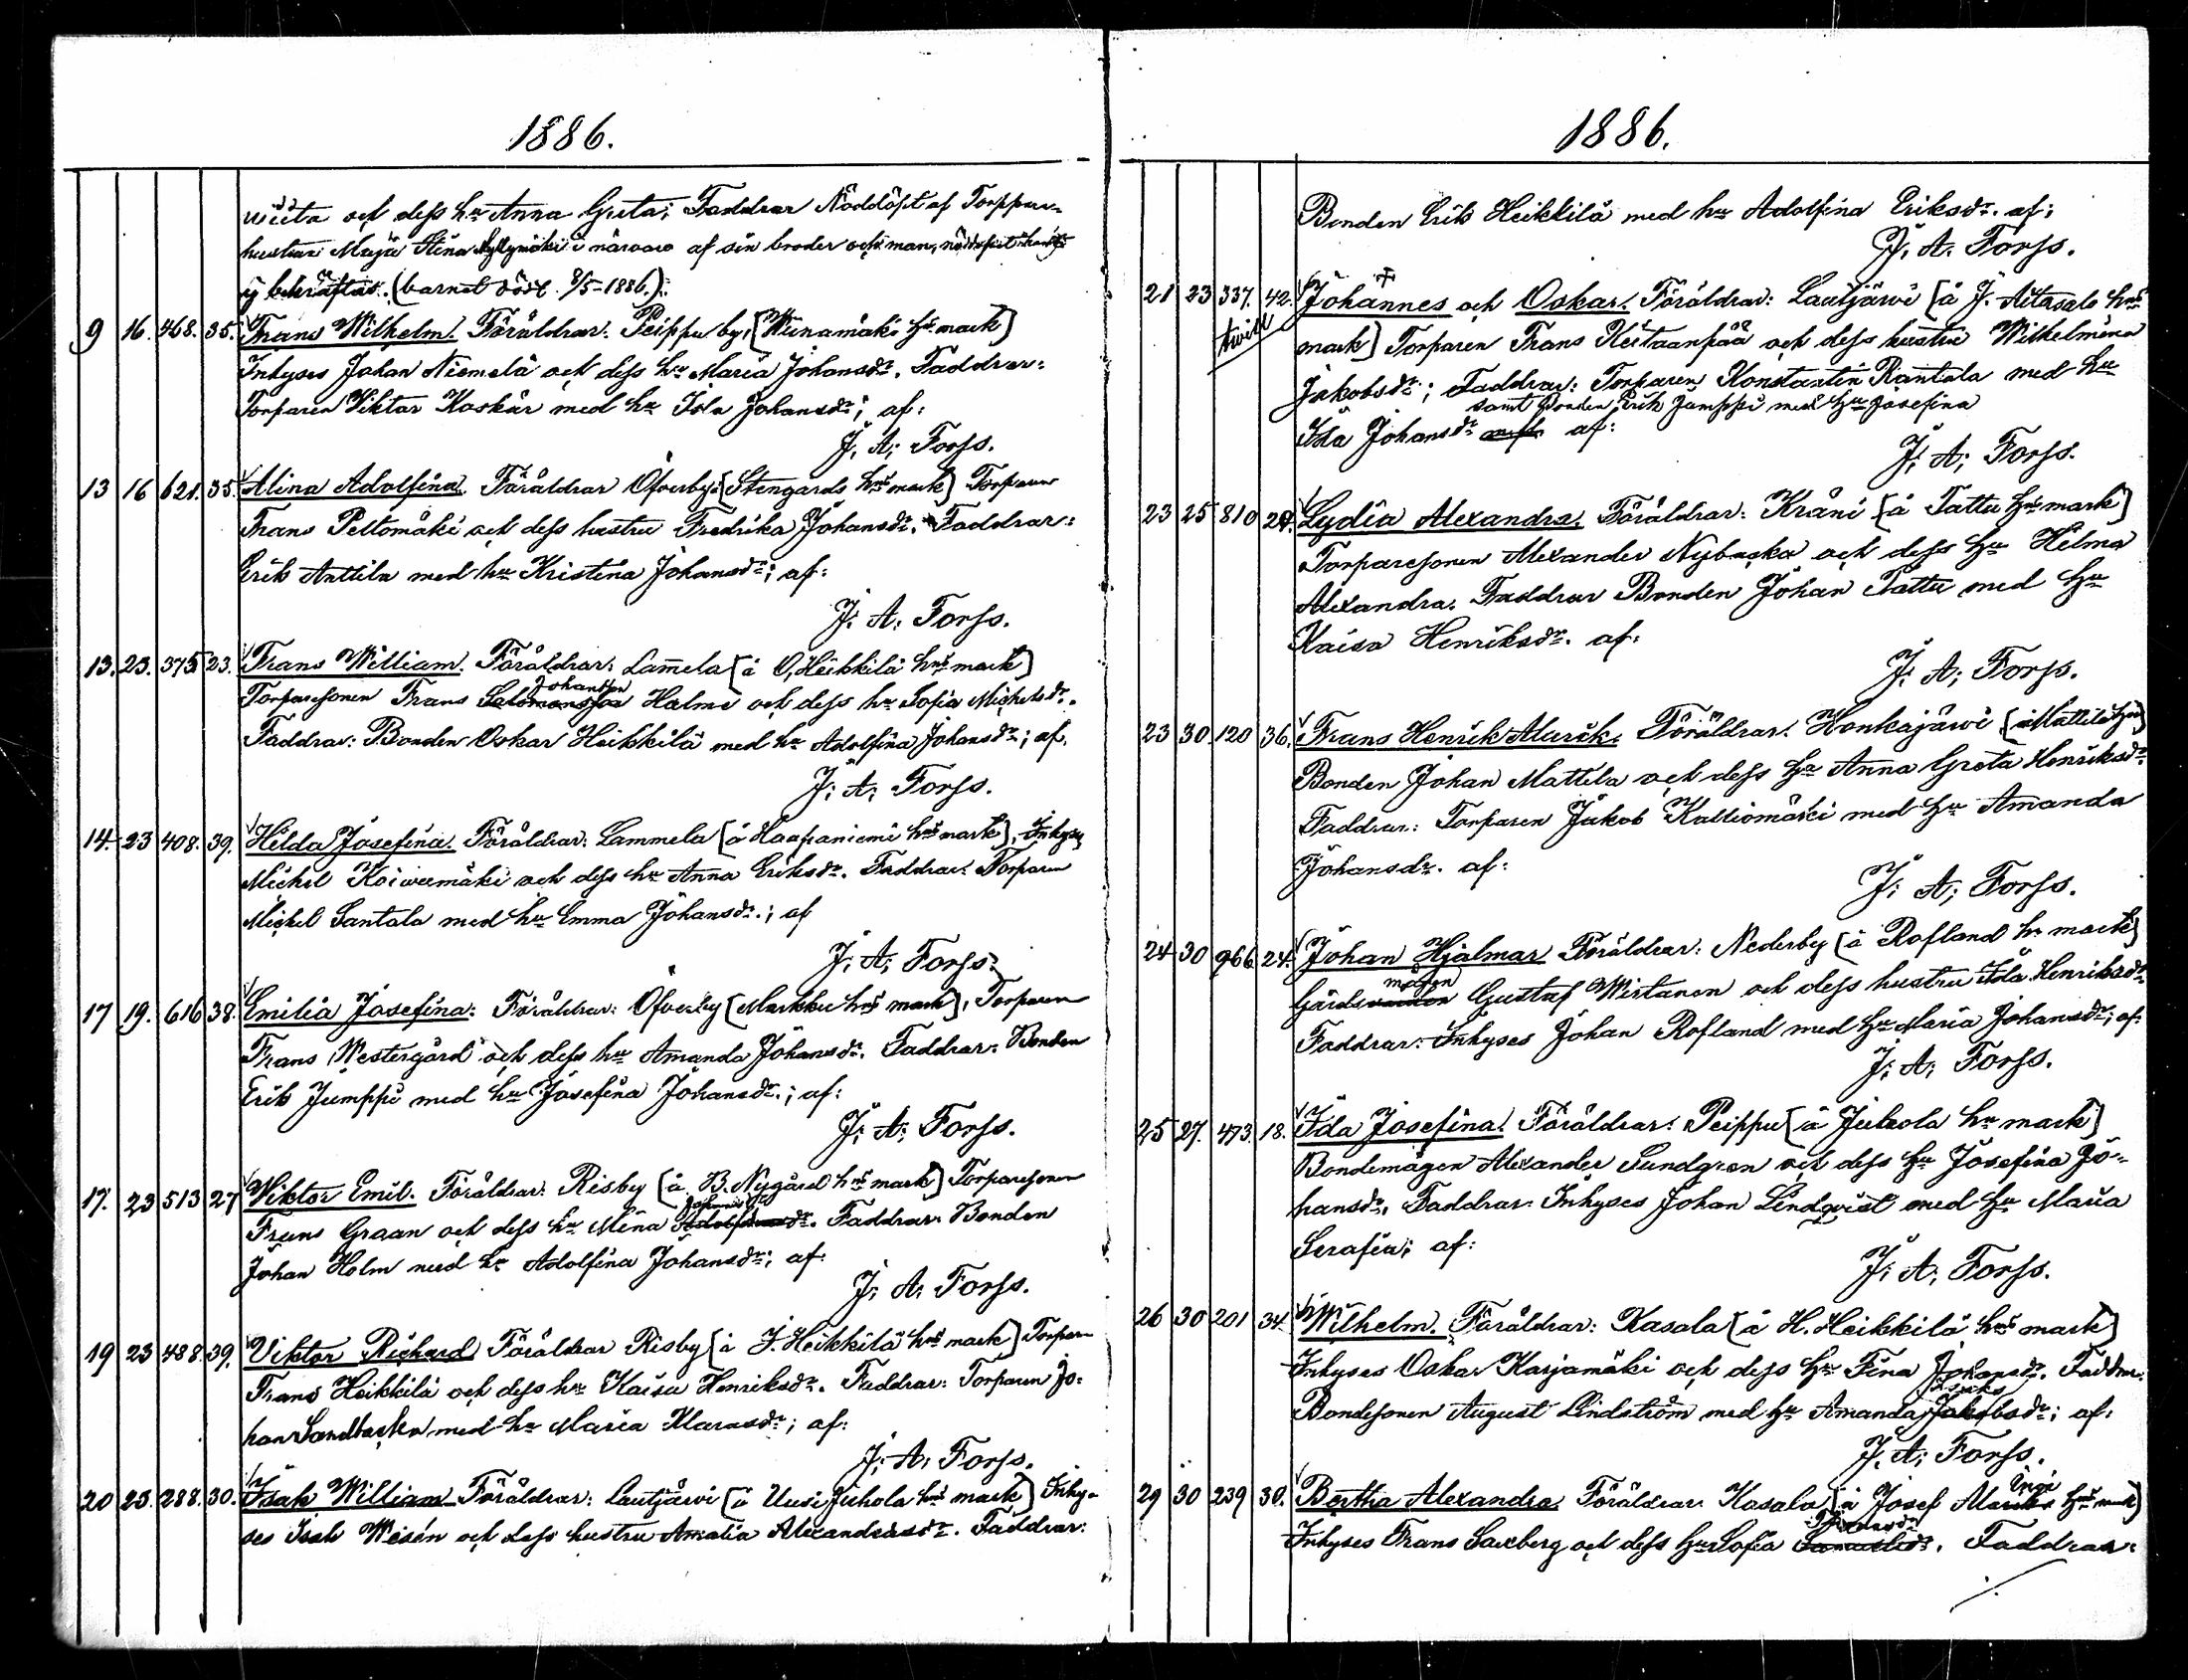 1886.
och dess hu Anna Greta; Faddrar Nöddöpt af Torpare-
hustrun Maja Stina Kyllymäki i närvaro af sin broder och man,
ej bekräftas. (barnet död 8/5-1886.)
9 16. 468. 35. Frans Wilhelm. Föräldrar: Peippu by, [Wiinamäki hns mark]
Inhyses Johan Niemelä och dess hu Maria Johansdr. Faddrar:
Torparen Viktor Koskär med hu Isla Johansdr; af:
J. A. Forss.
13 16 621. 35. Alina Adolfina. Föräldrar Öfverby: [Stengards hns mark] Torparen
Frans Peltomäki och dess hustru Fredrika Johansdr. Faddrar:
Erik Anttila med hu Kristina Johansdr; af:
J. A. Forss.
13. 23. 375 23. Frans William. Föräldrar: Lamela [å O. Heikkilä hns mark]
Torparesonen Frans Salomonsson Johansson Halmi och dess hu Sofia Michelsdr.
Faddrar: Bonden Oskar Heikkilä med hu Adolfina Johansdr; af.
J. A. Forss.
14. 23 408. 39. Hilda Josefina. Föräldrar: Lammela [å Haapaniemi hns mark], Inhyses
Michel Koiwumäki och dess hu Anna Eriksdr. Faddrar: Torparen
Michel Santala med hu Emma Johansdr.; af
J. A. Forss.
17 19. 616 38. Emilia Josefina: Föräldrar: Öfverby [Markku hns mark], Torparen
Frans Westergård och dess hu Amanda Johansdr. Faddrar: Bonden
Erik Jumppi med hu Josefina Johansdr.; af:
J. A. Forss.
17. 23 513 27 Wiktor Emil. Föräldrar: Risby [å B. Nygård hns mark] Torparesonen
Frans Graan och dess hu Mina Adolf dr. Faddrar: Bonden
Johan Holm med hu Adolfina Johansdr; af:
J. A. Forss.
19 23 488. 39. Viktor Richard Föräldrar Risby [å J. Heikkilä hns mark] Torparen
Frans Heikkilä och dess hu Kaisa Henriksdr. Faddrar: Torparen Jo-
han Sandbacka med hu Maria Klarasdr; af:
J. A. Forss.
20 23. 288. 30. Isak William Föräldrar: Lautjärwi [å Uusi Juhola hns mark] Inhy-
ses Isak Wesén och dess hustru Amalia Alexandersdr. Faddrar:
1886.
Bonden Erik Heikkilä med hu Adolfina Eriksdr. af:
J. A. Forss.
21 23 337. 42. Johannes och Oskar. Föräldrar: Lautjärwi [å J. Aitasalo hns
mark] Torparen Frans Kiitaanpää och dess hustru Wilhelmina
Jakobsdr; Faddrar: Torparen Konstantin Rantala med hu
samt Bonden Erik Jumppi med hu Josefina
Isa Johansdr af:
J. A. Forss.
23 25 810 24. Lydia Alexandra. Föräldrar: Kråni [å Tattu hns mark]
Torparesonen Alexander Nybacka och dess hu Hilma
Alexandra. Faddrar Bonden Johan Tattu med hu
Kaisa Henriksdr. af:
J. A. Forss.
23 30 120 36. Frans Henrik Alarik. Föräldrar. Honkajärwi [å Mattila hns]
Bonden Johan Mattila och dess hu Anna Greta Henriksdr.
Faddrar: Torparen Jakob Kalliomäki med hu Amanda
Johansdr. af:
J. A. Forss.
24 30 966 24. Johan Hjalmar Föräldrar: Nederby [å Rofland hns mark]
mågen
Gårds Gustaf Wirtanen och dess hustru Ida Henriksdr.
Faddrar: Inhyses Johan Rofland med hu Maria Johansdr; af:
J. A. Forss.
25 27. 473. 18. Ida Josefina. Föräldrar: Peippu [å Juhola hns mark]
Bondemågen Alexander Sundgren och dess hu Josefina Jo-
hansdr. Faddrar: Inhyses Johan Lindqvist med hu Maria
Serafia; af:
J. A. Forss.
26 30 201 34. Wilhelm. Föräldrar: Kasala [å H. Heikkilä hns mark]
Inhyses Oskar Karjamäki och dess hu Fina Johansdr. Faddrar:
Bondesonen August Lindström med hu Amanda Isaks Jakobsdr; af:
J. A. Forss.
29 30 239 30. Bertha Alexandra. Föräldrar: Kasala [å Josef hns mark]
Inhyses Frans Saxberg och dess hu Sofia Faddrar: